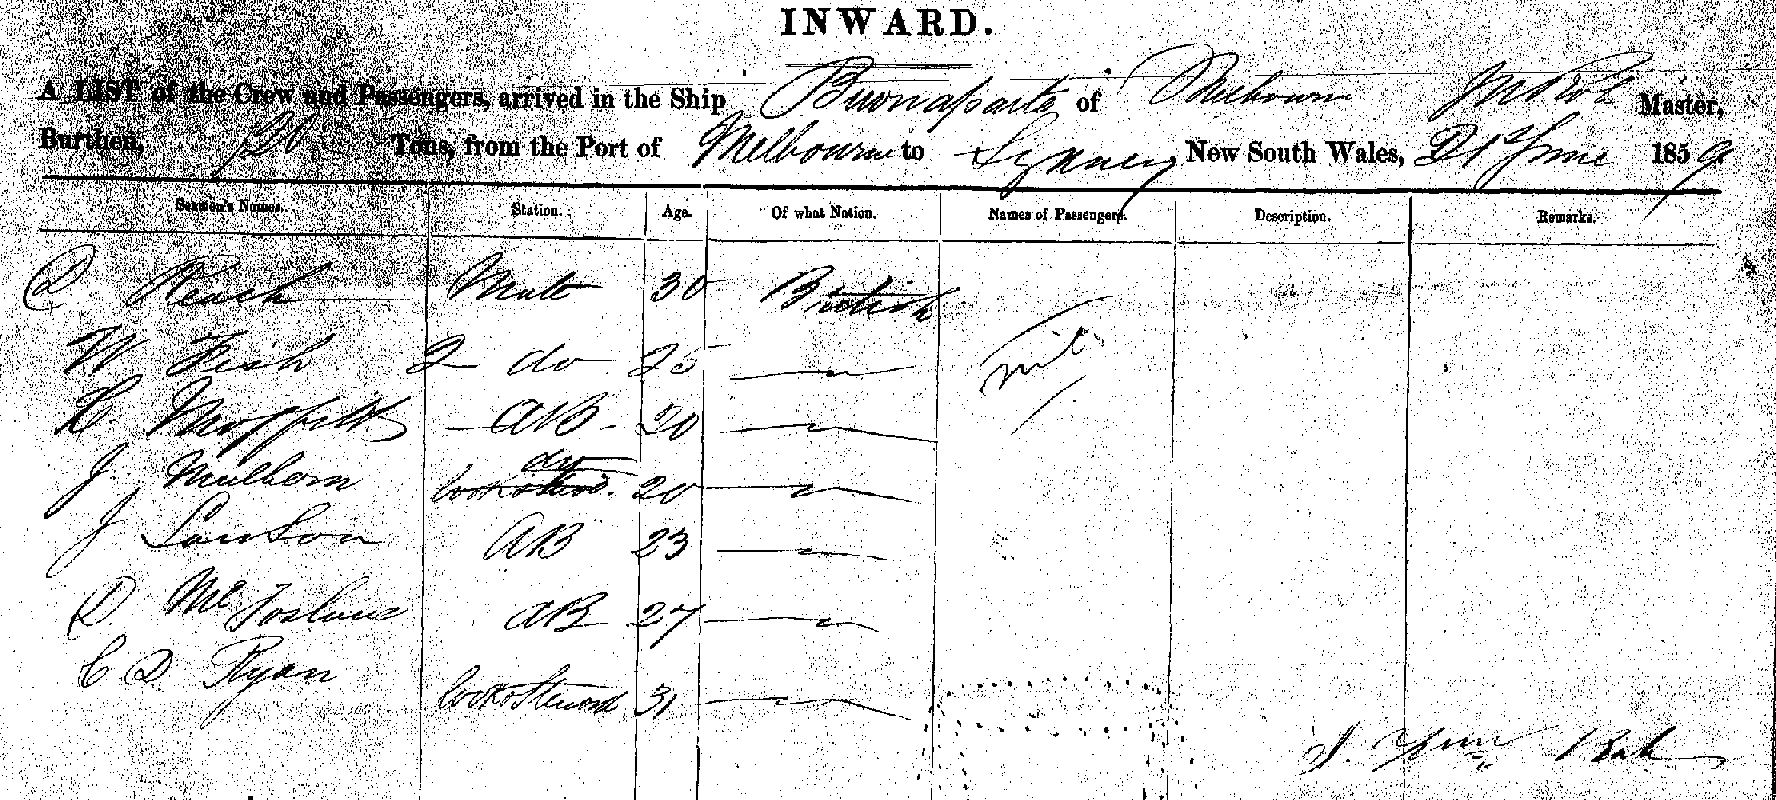 INWARD.
A LIST of the Crew and Passengers, arrived in the Ship Buonaparte of Melbourn Master,
Burthen, Tons, from the Port of Melbourne to Sydney New South Wales, 21st June 1859
Seamen's Names. Station. Age. Of what Nation. Names of Passengers. Description. Remarks.
D. Mate 30 British
W Fish 2 do 25 nil
Moffitt AB 20
J. Mulhorn do 20
J Lawson AB 23
D Mc AB 27
C D Ryan
Cook & Steward 31